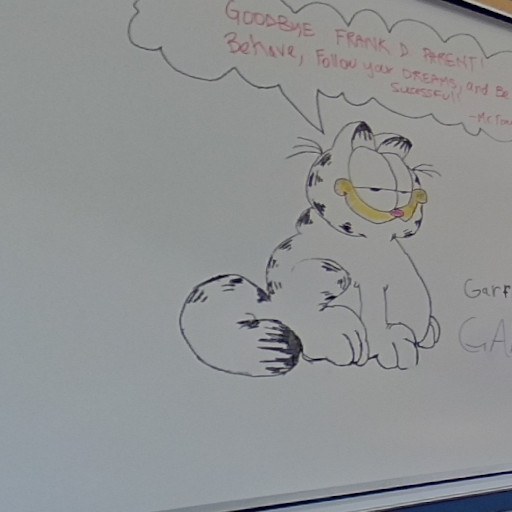 GOODBYE FRANK D PARENT!
Behave, Follow your DREAMS, and Be
Sucessful!
Garf
GA